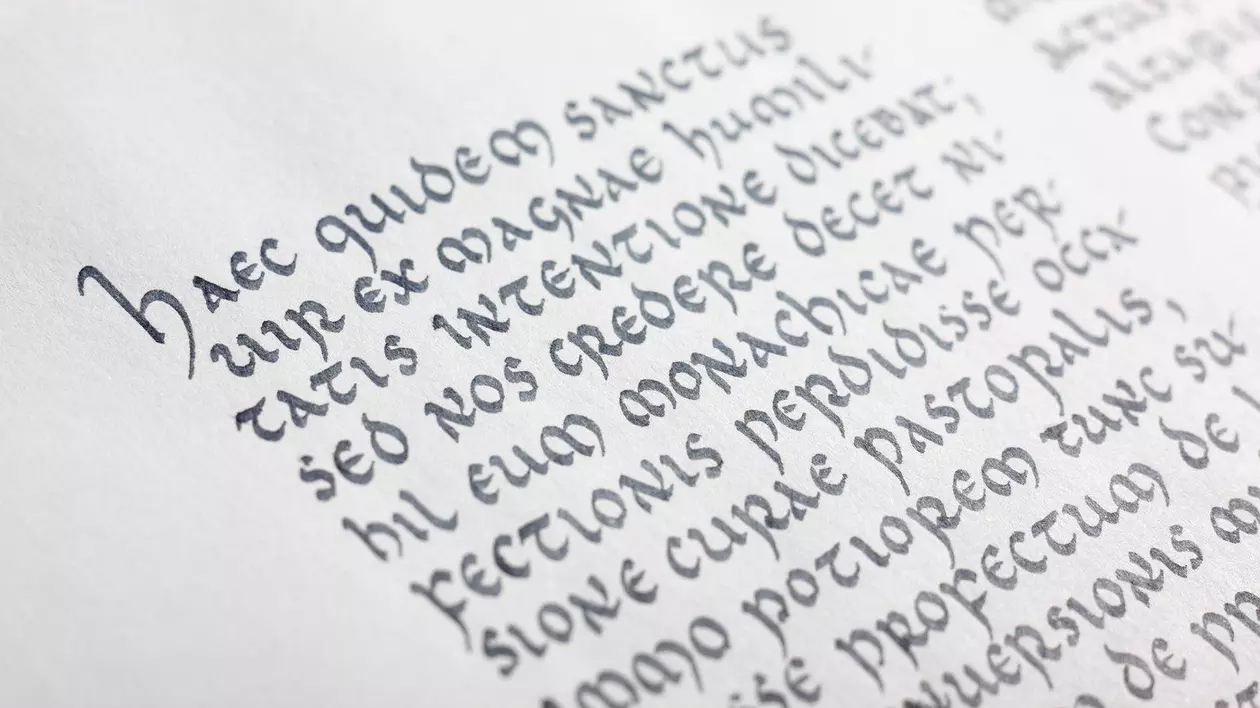 haec quidem sanctus
uir ex magnae humili-
tatis intentione dicebat;
sed nos credere decet ni-
hil eum monachicae per-
fectionis perdidisse occa-
sione curae pastoralis,
immo potiorem tunc su-
sse profectum de l
nuersionis m
de pr